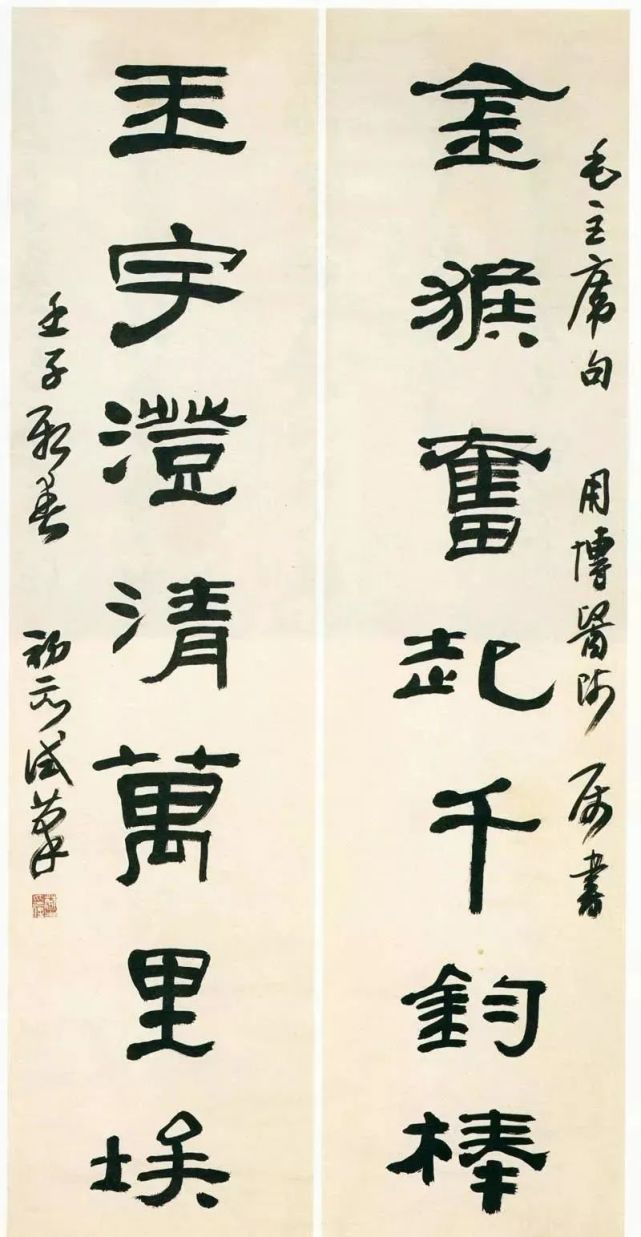 毛主席句 用博醫師 属書
金猴奮起千鈞棒
玉宇澄清萬里埃
壬子新春 初 試筆